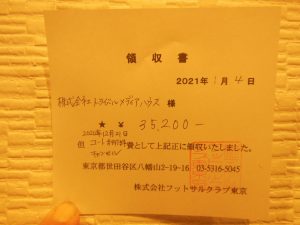 領収書
2021年1月4日
株式会社トライバルメディアハウス 様
★ ¥ 35,200-
2020年12月21日
但 コート キャンセル 費として上記正に領収いたしました。
東京都世田谷区八幡山2-19-16 03-5316-5045
株式会社フットサルクラブ東京